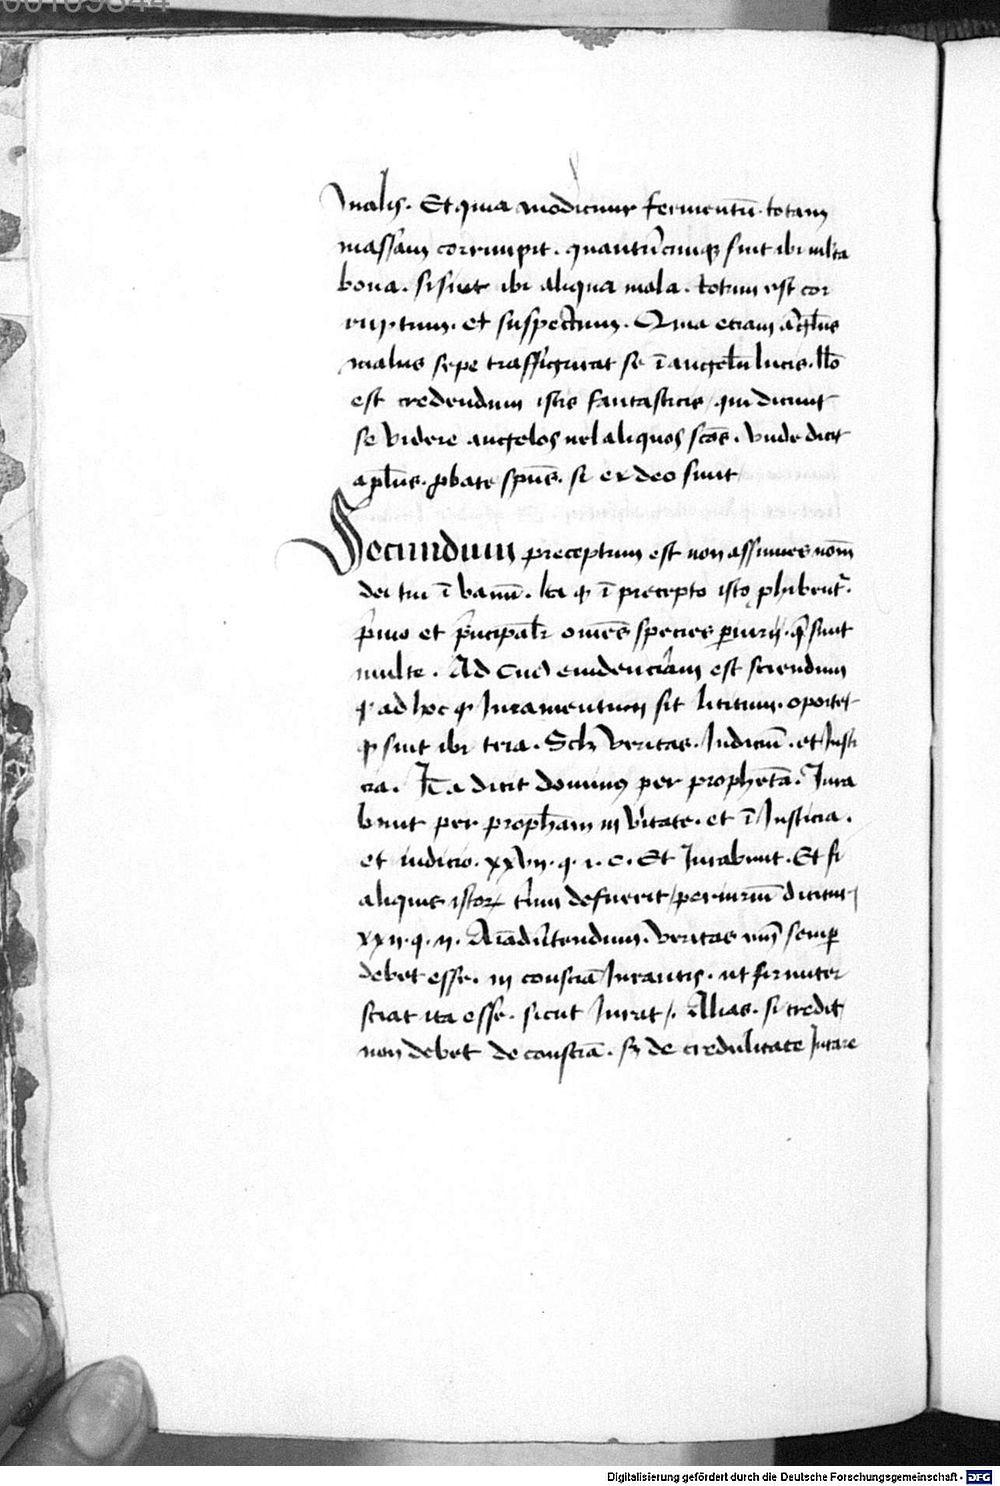 malis. Et quia modicum fermentū totam
massam corrumpit. quantūcunqꝫ sint ibi mlta
bona. si sint ibi aliqua mala. totum est cor
ruptum. et suspectum. Quia etiam āgl̄us
malus sepe trassfigurat se ī angelū lucis. Iō
est credendum istis fantasticis, qui dicunt
se videre angelos uel aliquos scōs. Vnde dicit
apl̄us. ꝓbate spūs. si ex deo sunt
Secundum preceptum est non assumes nom̄
dei tui ī vanū. Ita ꝙ ī precepto isto ꝓhibent᷑.
p̄mo et p̄ncipalr̄ oms̄ species ꝑiurij. q̄ sunt
multe. Ad cuiꝰ euidenciam est sciendum
ꝙ ad hoc ꝙ Iuramentum sit licitum. oportet
ꝙ sint ibi tria. Scꝫ Veritas. Iudiciū. et Iusti
cia. Ita dicit dominus per prophetā. Iura
bunt per propham̄ in v̄itate. et ī Iusticia.
et iudicio. xxvii. q. i. c. Et Iurabunt. Et si
aliquis istoꝝ trium defuerit, periuriū dicitur,
xxii. q. ii. veritas em̄ semꝑ
debet esse. in consciā Iurantis. ut firmiter
sciat ita esse. sicut Iurat/. Alias. si credit
non debet de consciā. sꝫ de credulitate Iurare
00109844
Digitalisierung gefördert durch die Deutsche Forschungsgemeinschaft - DFG